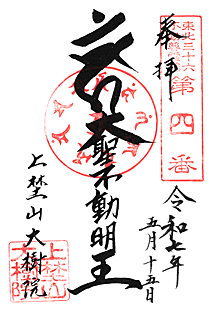 奉拝
東北三十六
不動尊霊場
第四番
大聖不動明王
令和七年
五月十五日
上埜山大樹院